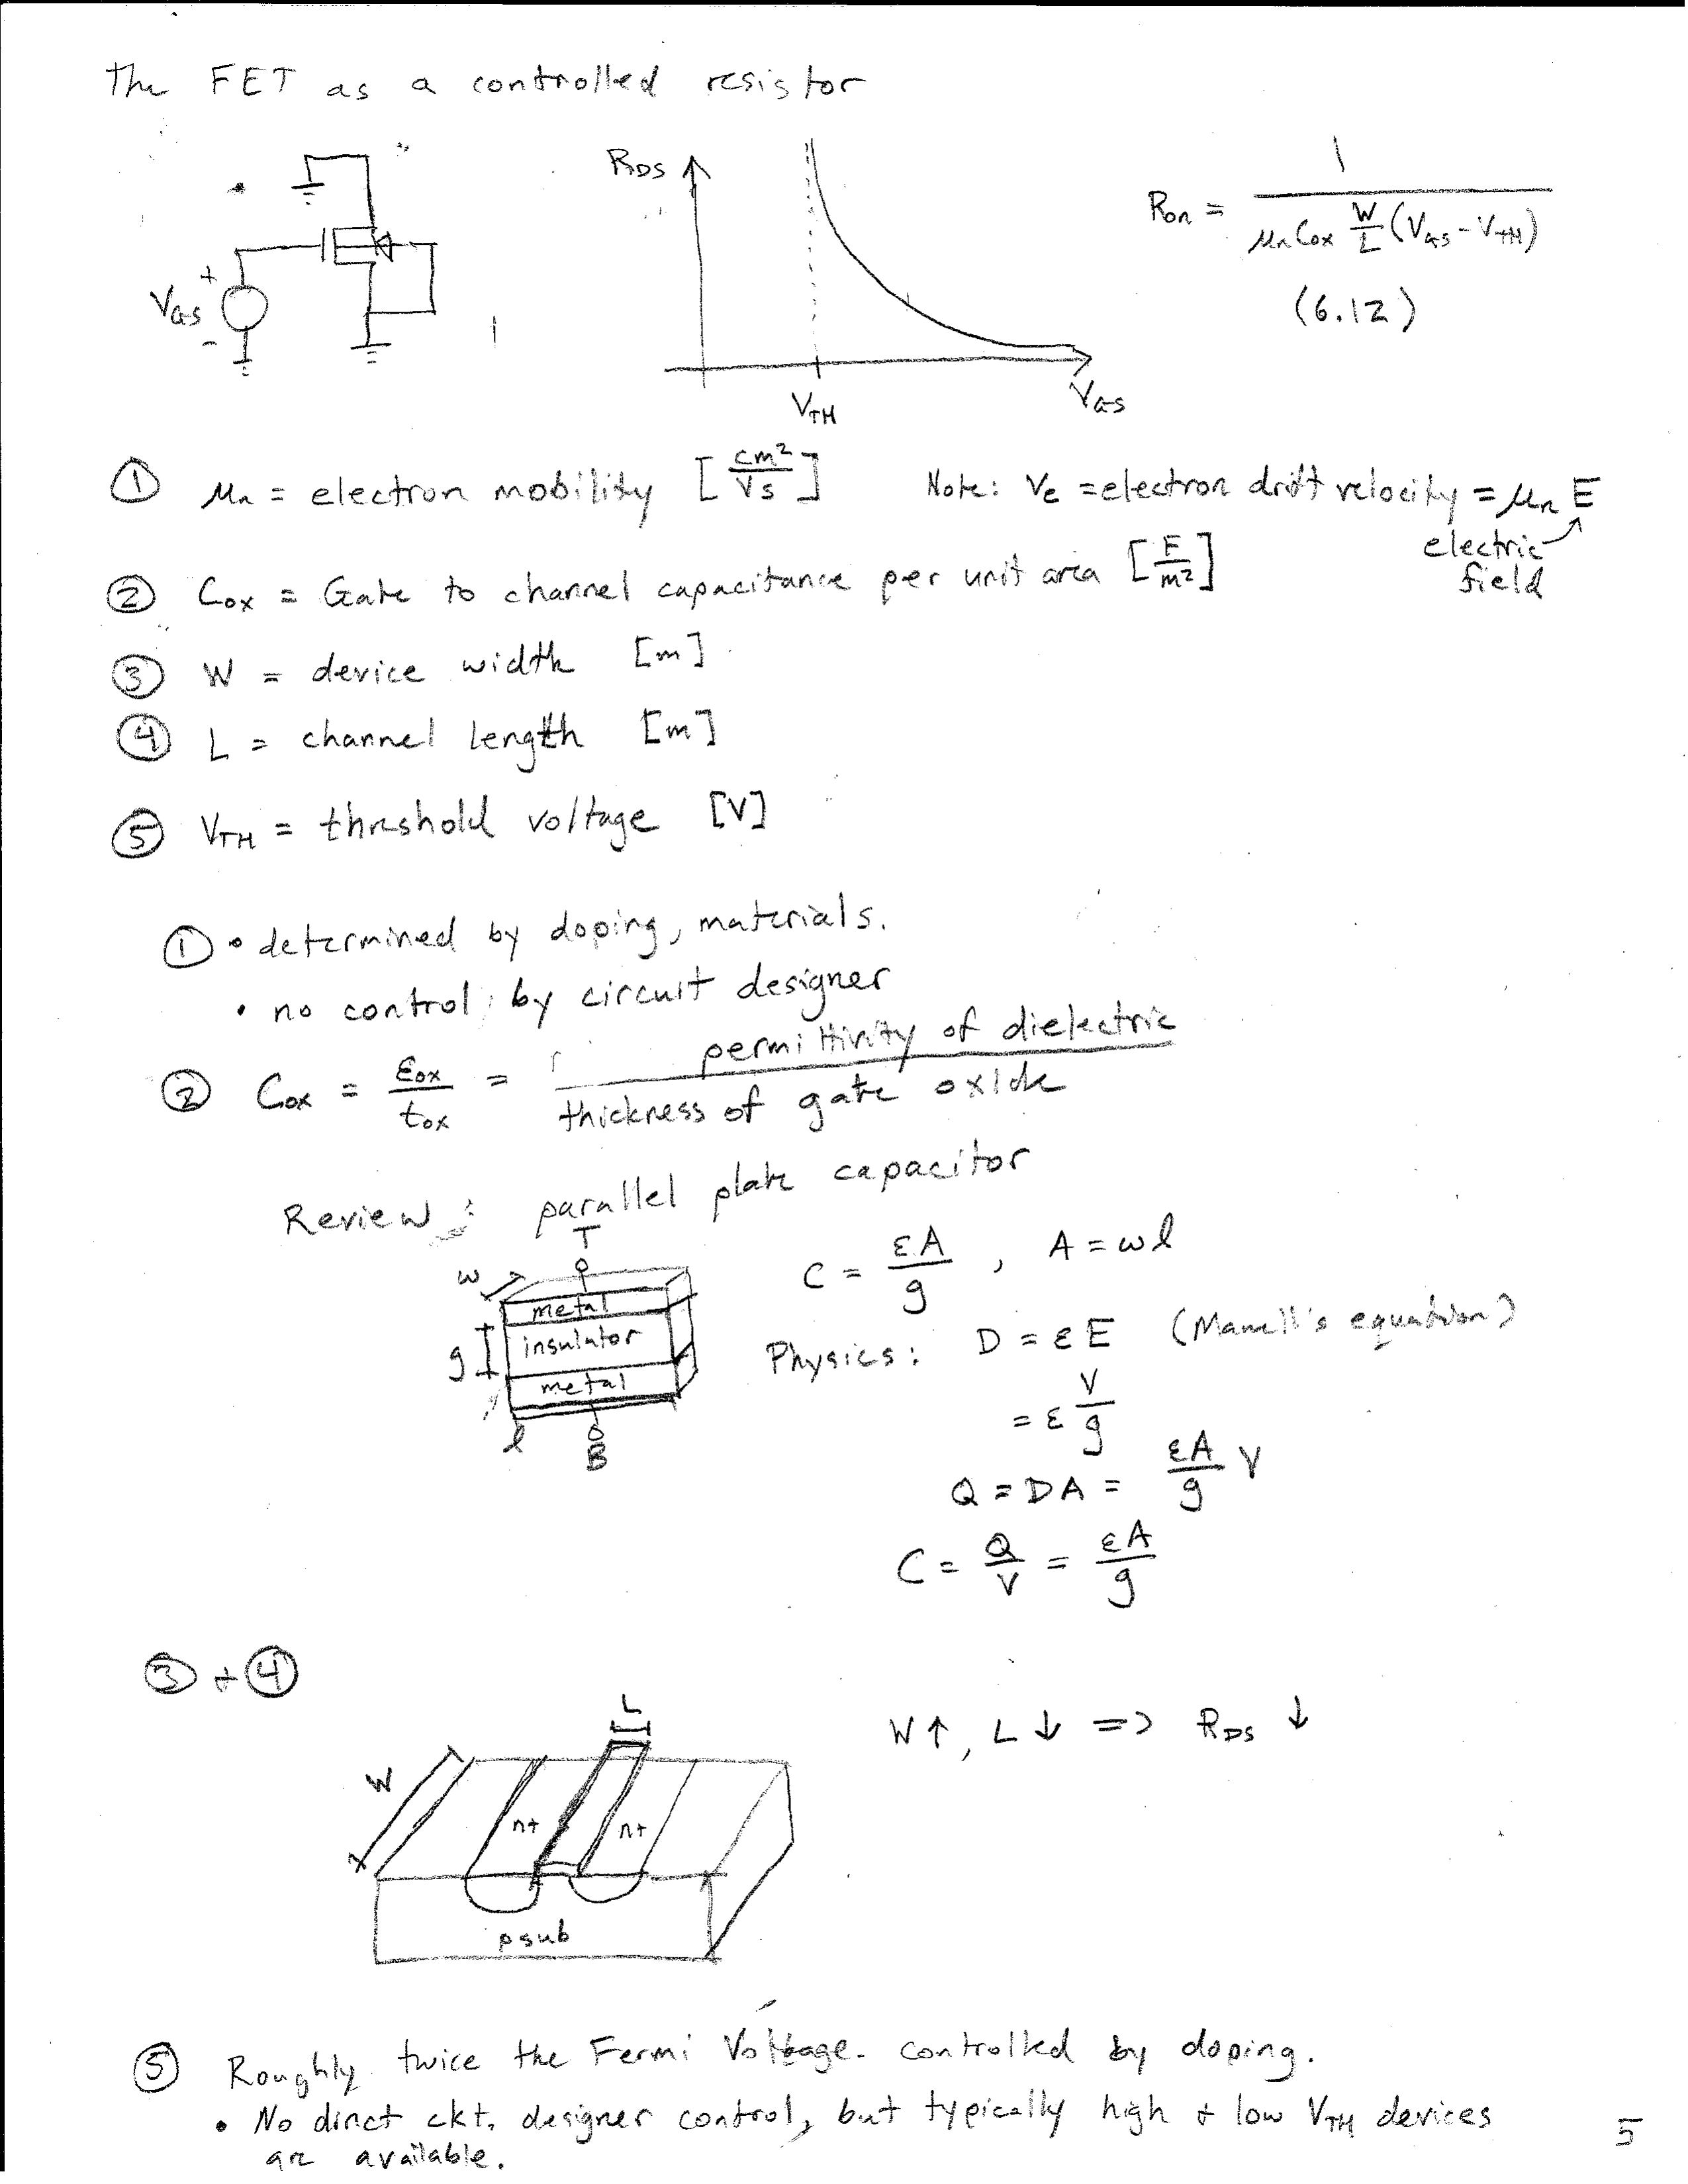 The FET as a controlled resistor
V_GS + -
R_DS
V_TH
V_GS
R_on = 1 / (μ_n C_ox W/L (V_GS - V_TH))
(6.12)
① μ_n = electron mobility [cm²/Vs] Note: v_e = electron drift velocity = μ_n E
electric
field
② C_ox = Gate to channel capacitance per unit area [F/m²]
③ W = device width [m]
④ L = channel length [m]
⑤ V_TH = threshold voltage [V]
① • determined by doping, materials.
• no control by circuit designer
② C_ox = ε_ox / t_ox = permittivity of dielectric / thickness of gate oxide
Review: parallel plate capacitor
T
w
metal
g insulator
metal
l
B
C = εA/g , A = wl
Physics: D = εE (Maxwell's equation)
= ε V/g
Q = DA = εA/g V
C = Q/V = εA/g
③ + ④
L
W
n+ n+
psub
W↑, L↓ => R_DS ↓
⑤ Roughly twice the Fermi Voltage. controlled by doping.
• No direct ckt. designer control, but typically high + low V_TH devices
are available.
5